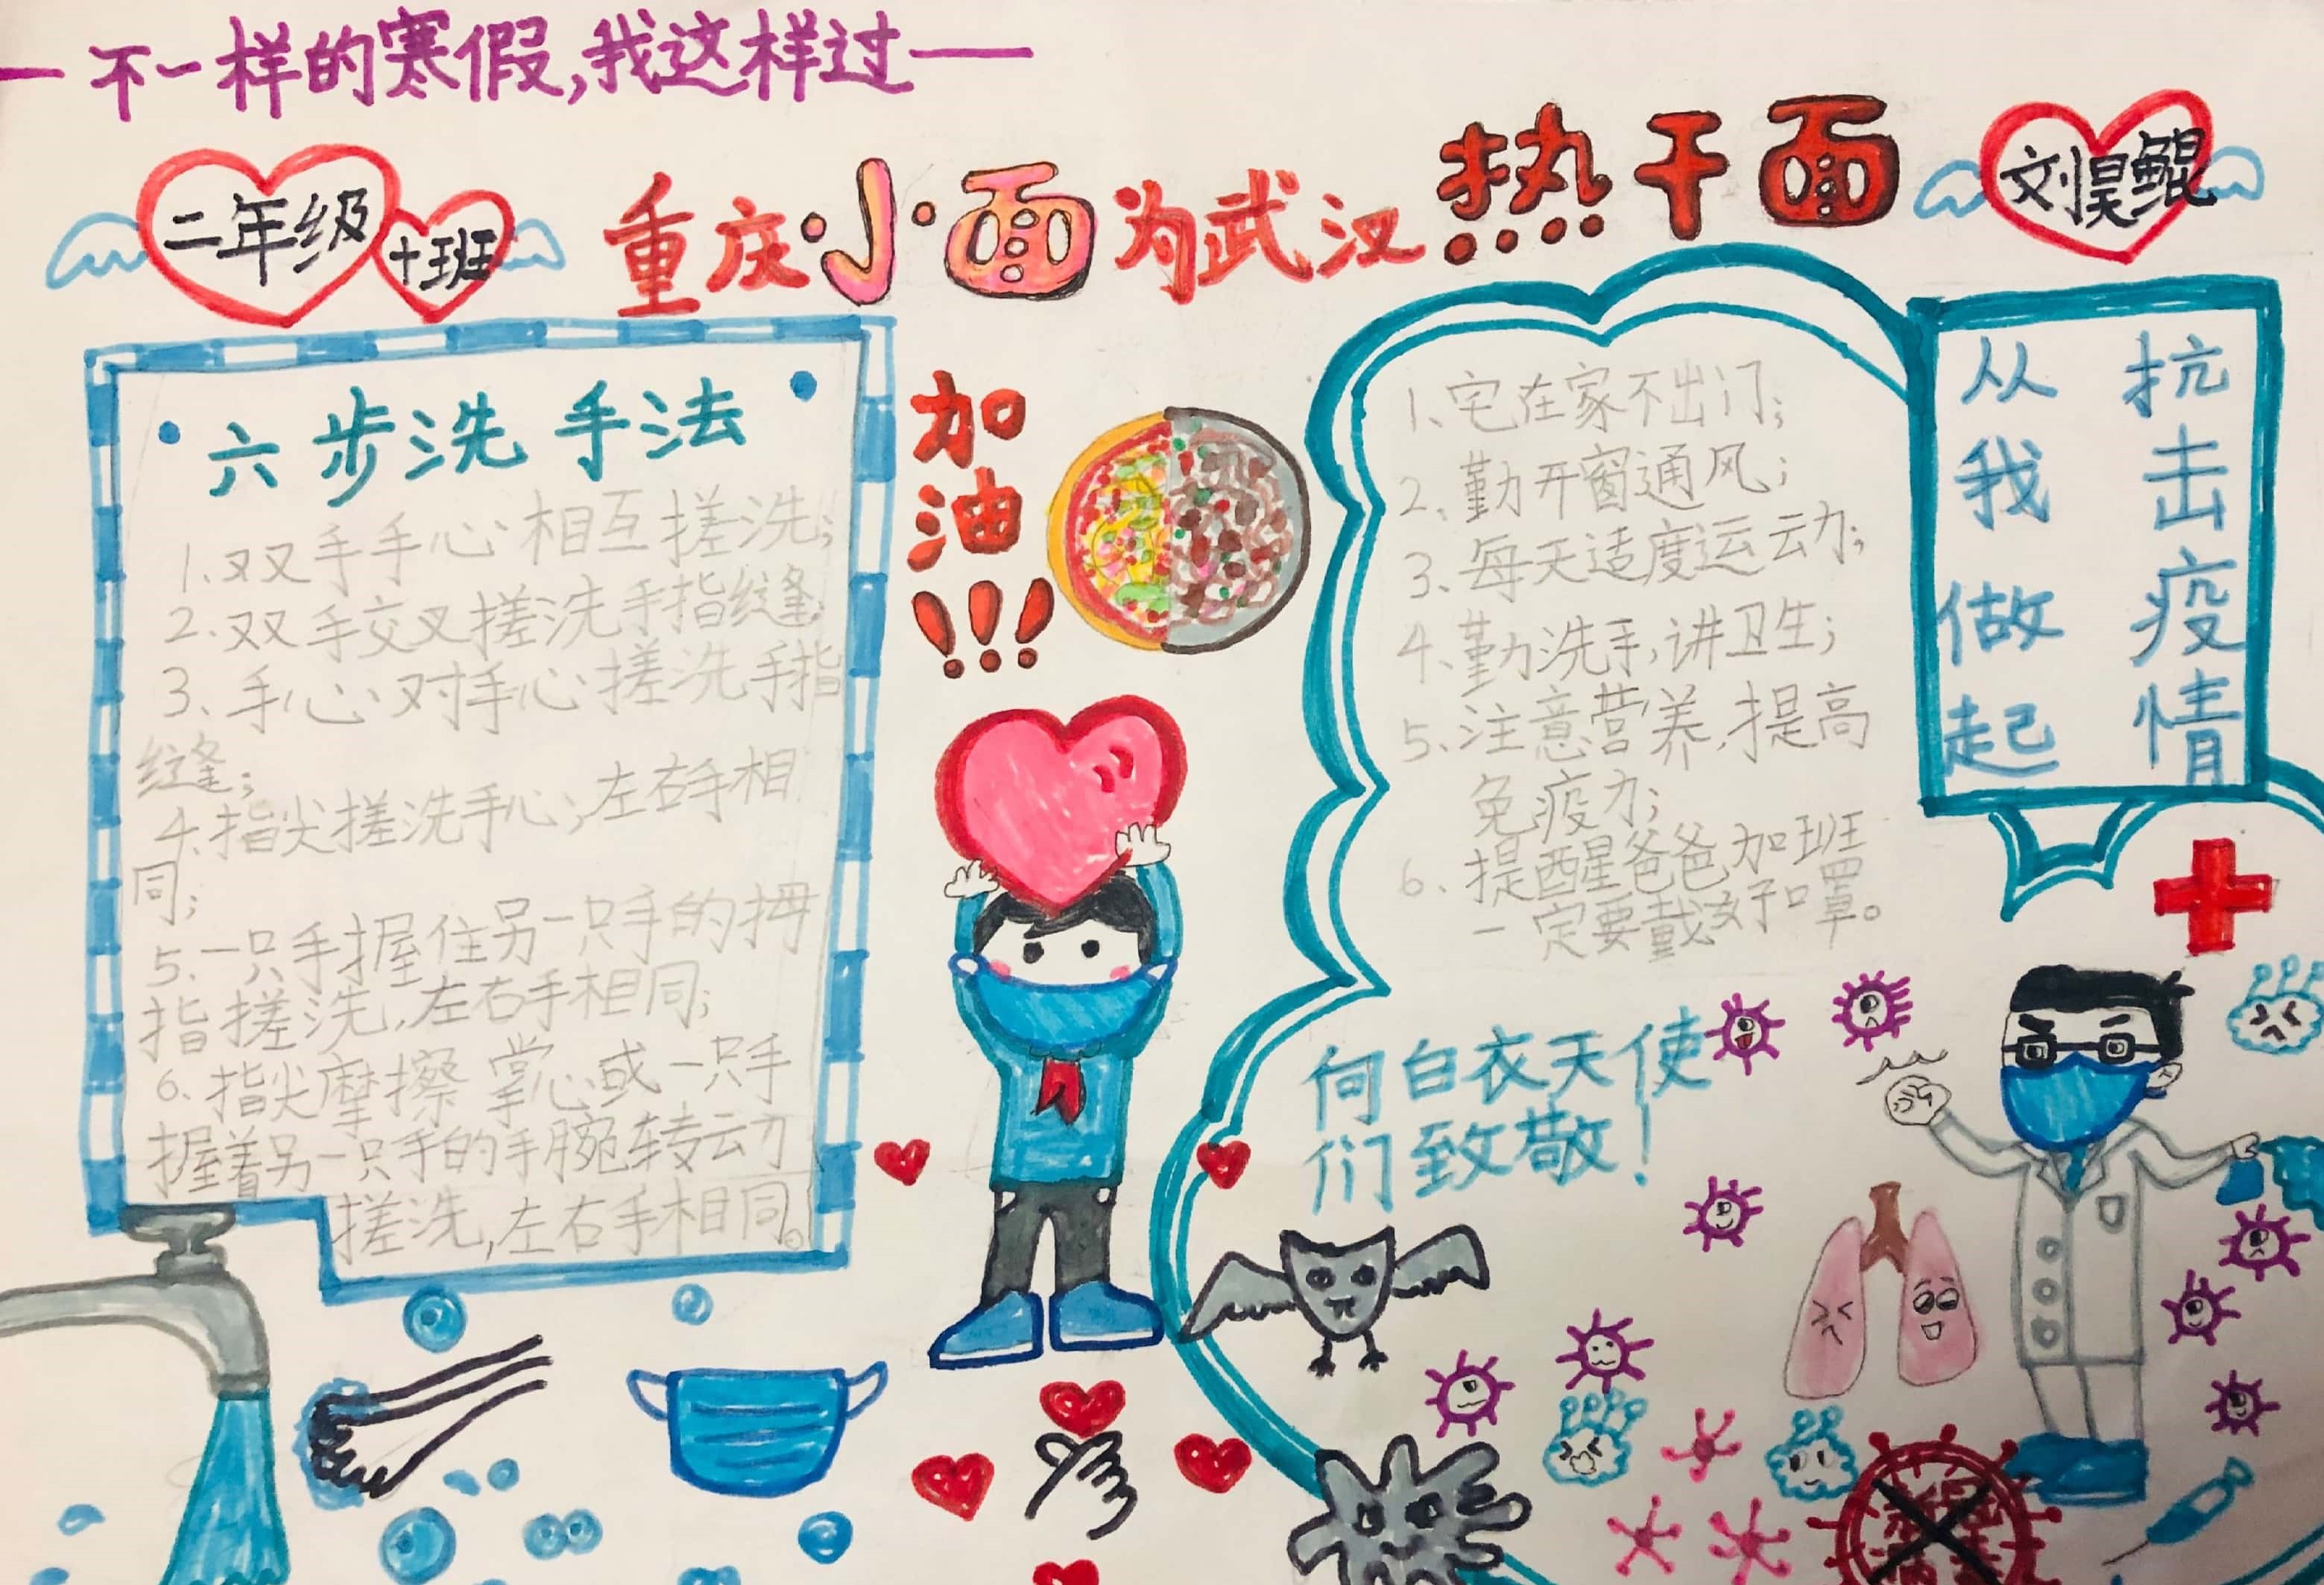 一不一样的寒假,我这样过一
二年级
十班
重庆小面为武汉热干面
刘昊鲲
加油!!!
六步洗手法
1、双手手心相互搓洗;
2、双手交叉搓洗手指缝;
3、手心对手心搓洗手指
缝;
4、指尖搓洗手心;左右手相
同;
5、一只手握住另一只手的拇
指搓洗,左右手相同;
6、指尖摩擦掌心或一只手
握着另一只手的手腕转动
搓洗,左右手相同。
1、宅在家不出门;
2、勤开窗通风;
3、每天适度运动;
4、勤洗手,讲卫生;
5、注意营养,提高
免疫力;
6、提醒爸爸加班
一定要戴好口罩。
抗击疫情
从我做起
向白衣天使
们致敬!